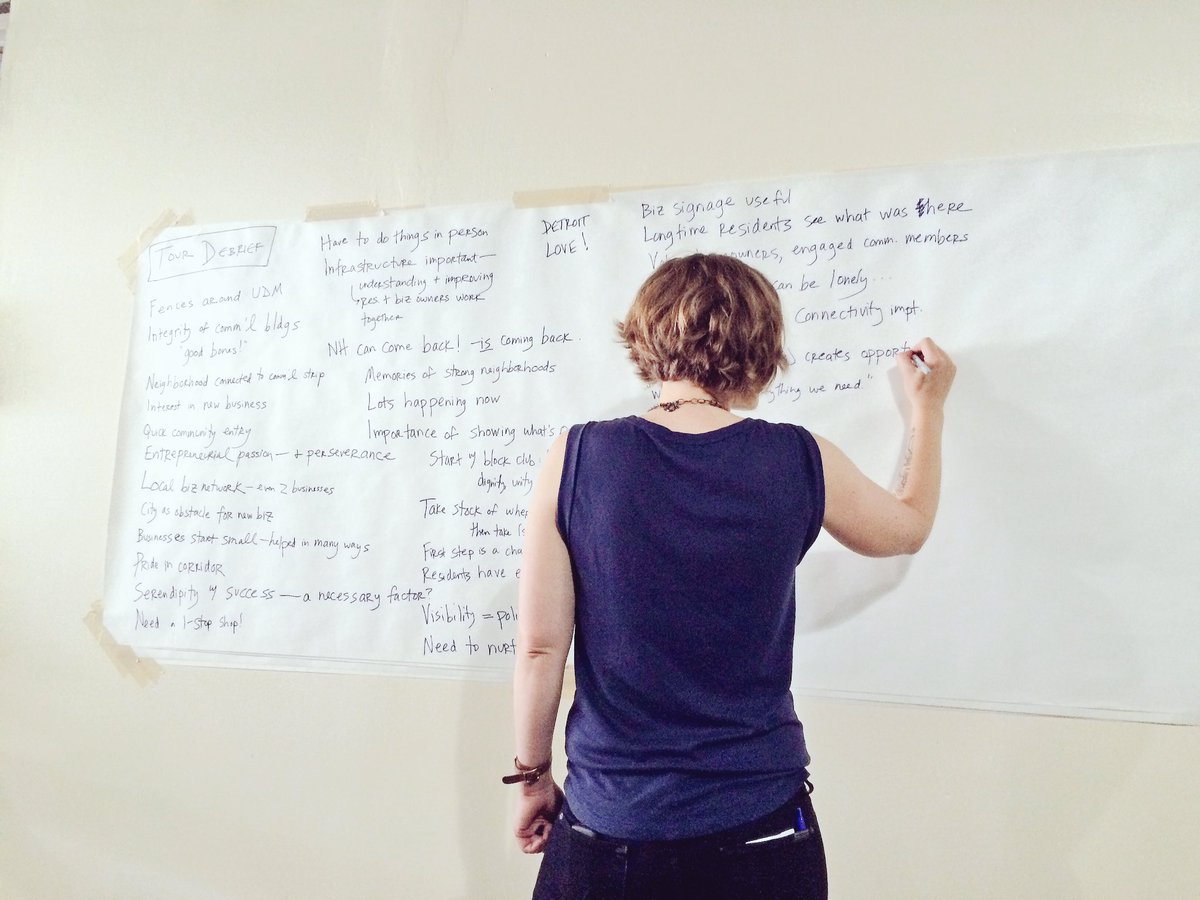 TOUR DEBRIEF
Fences around UDM
Integrity of comm'l bldgs
"good bones!"
Neighborhood connected to comm'l strip
Interest in new business
Quick community entry
Entrepreneurial passion — + perseverance
Local biz network — even 2 businesses
City as obstacle for new biz
Businesses start small — helped in many ways
Pride in corridor
Serendipity w/ success — a necessary factor?
Need a 1-stop shop!
Have to do things in person
Infrastructure important —
understanding + improving
res. + biz owners work
together
NH can come back! — is coming back.
Memories of strong neighborhoods
Lots happening now
Importance of showing what's
Start w/ block club
dignity, unity
Take stock of
then take
First step is a
Residents have
Visibility =
Need to
DETROIT
LOVE!
Biz signage useful
Longtime residents see what was there
owners, engaged comm. members
can be lonely...
Connectivity impt.
creates
we need"